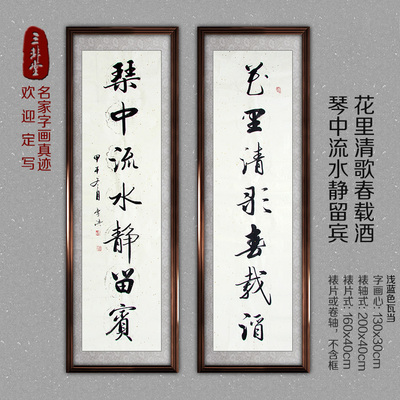 花里清歌春载酒
琴中流水静留宾
浅蓝色瓦当
字画心:130x30cm
裱轴式:200x40cm
裱片式:160x40cm
裱片或卷轴,不含框
花里清歌春載酒
琴中流水靜留賓
名家字画真迹
欢迎定写